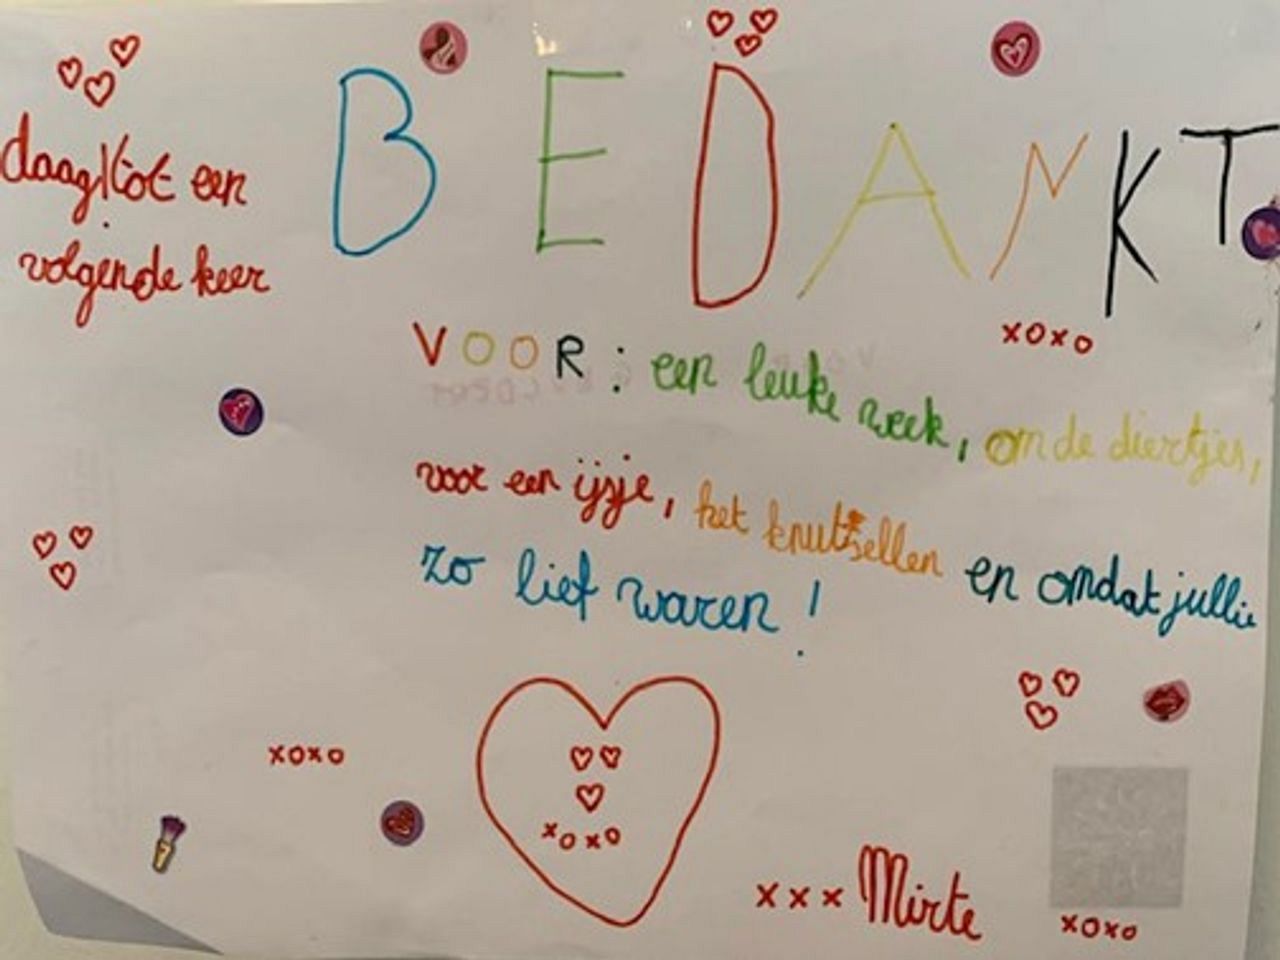 daag! tot een
volgende keer
BEDANKT
xoxo
VOOR: een leuke week, om de diertjes,
voor een ijsje, het knutsellen en omdat jullie
zo lief waren!
xoxo
xoxo
xxx Mirte
xoxo